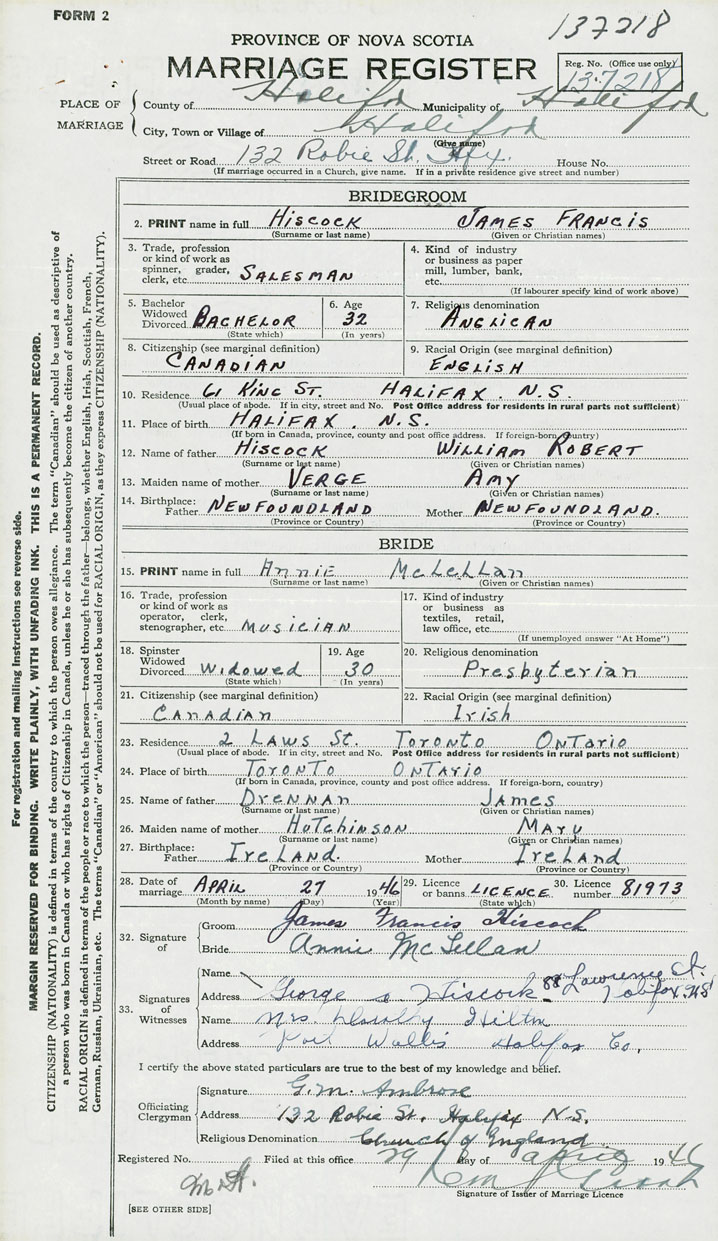 FORM 2
137218
PROVINCE OF NOVA SCOTIA
MARRIAGE REGISTER
Reg. No. (Office use only)
137218
PLACE OF MARRIAGE
County of Halifax Municipality of Halifax
City, Town or Village of Halifax
(Give name)
Street or Road 132 Robie St. Hfx. House No.
(If marriage occurred in a Church, give name. If in a private residence give street and number)
BRIDEGROOM
2. PRINT name in full HISCOCK JAMES FRANCIS
(Surname or last name) (Given or Christian names)
3. Trade, profession or kind of work as spinner, grader, clerk, etc. SALESMAN
4. Kind of industry or business as paper mill, lumber, bank, etc.
(If labourer specify kind of work above)
5. Bachelor Widowed Divorced BACHELOR
(State which)
6. Age 32
(In years)
7. Religious denomination
ANGLICAN
8. Citizenship (see marginal definition)
CANADIAN
9. Racial Origin (see marginal definition)
ENGLISH
10. Residence 61 KING ST. HALIFAX. N.S.
(Usual place of abode. If in city, street and No. Post Office address for residents in rural parts not sufficient)
11. Place of birth HALIFAX. N.S.
(If born in Canada, province, county and post office address. If foreign-born, country)
12. Name of father HISCOCK WILLIAM ROBERT
(Surname or last name) (Given or Christian names)
13. Maiden name of mother VERGE AMY
(Surname or last name) (Given or Christian names)
14. Birthplace: Father NEWFOUNDLAND Mother NEWFOUNDLAND.
(Province or Country) (Province or Country)
BRIDE
15. PRINT name in full ANNIE McLELLAN
(Surname or last name) (Given or Christian names)
16. Trade, profession or kind of work as operator, clerk, stenographer, etc. MUSICIAN
17. Kind of industry or business as textiles, retail, law office, etc.
(If unemployed answer "At Home")
18. Spinster Widowed Divorced Widowed
(State which)
19. Age 30
(In years)
20. Religious denomination
Presbyterian
21. Citizenship (see marginal definition)
CANADIAN
22. Racial Origin (see marginal definition)
Irish
23. Residence 2 LAWS St. TORONTO ONTARIO
(Usual place of abode. If in city, street and No. Post Office address for residents in rural parts not sufficient)
24. Place of birth TORONTO ONTARIO
(If born in Canada, province, county and post office address. If foreign-born, country)
25. Name of father DRENNAN James
(Surname or last name) (Given or Christian names)
26. Maiden name of mother HUTCHINSON MARY
(Surname or last name) (Given or Christian names)
27. Birthplace: Father IRELAND. Mother IRELAND
(Province or Country) (Province or Country)
28. Date of marriage APRIL 27 1946
(Month by name) (Day) (Year)
29. Licence or banns LICENCE
(State which)
30. Licence number 81973
32. Signature of
Groom James Francis Hiscock
Bride Annie McLellan
33. Signatures of Witnesses
Name
Address George Hiscock 88 Lawrence St. Halifax. N.S.
Name Mrs Hilton
Address Wallis Halifax Co.
I certify the above stated particulars are true to the best of my knowledge and belief.
Officiating Clergyman
Signature G. M. Ambrose
Address 132 Robie St. Halifax N.S.
Religious Denomination Church of England
Registered No. Filed at this office 29 day of April 1946
Signature of Issuer of Marriage Licence
[SEE OTHER SIDE]
For registration and mailing instructions see reverse side.
MARGIN RESERVED FOR BINDING. WRITE PLAINLY, WITH UNFADING INK. THIS IS A PERMANENT RECORD.
CITIZENSHIP (NATIONALITY) is defined in terms of the country to which the person owes allegiance. The term "Canadian" should be used as descriptive of
a person who was born in Canada or who has rights of Citizenship in Canada, unless he or she has subsequently become the citizen of another country.
RACIAL ORIGIN is defined in terms of the people or race to which the person—traced through the father—belongs, whether English, Irish, Scottish, French,
German, Russian, Ukrainian, etc. The terms "Canadian" or "American" should not be used for RACIAL ORIGIN, as they express CITIZENSHIP (NATIONALITY).